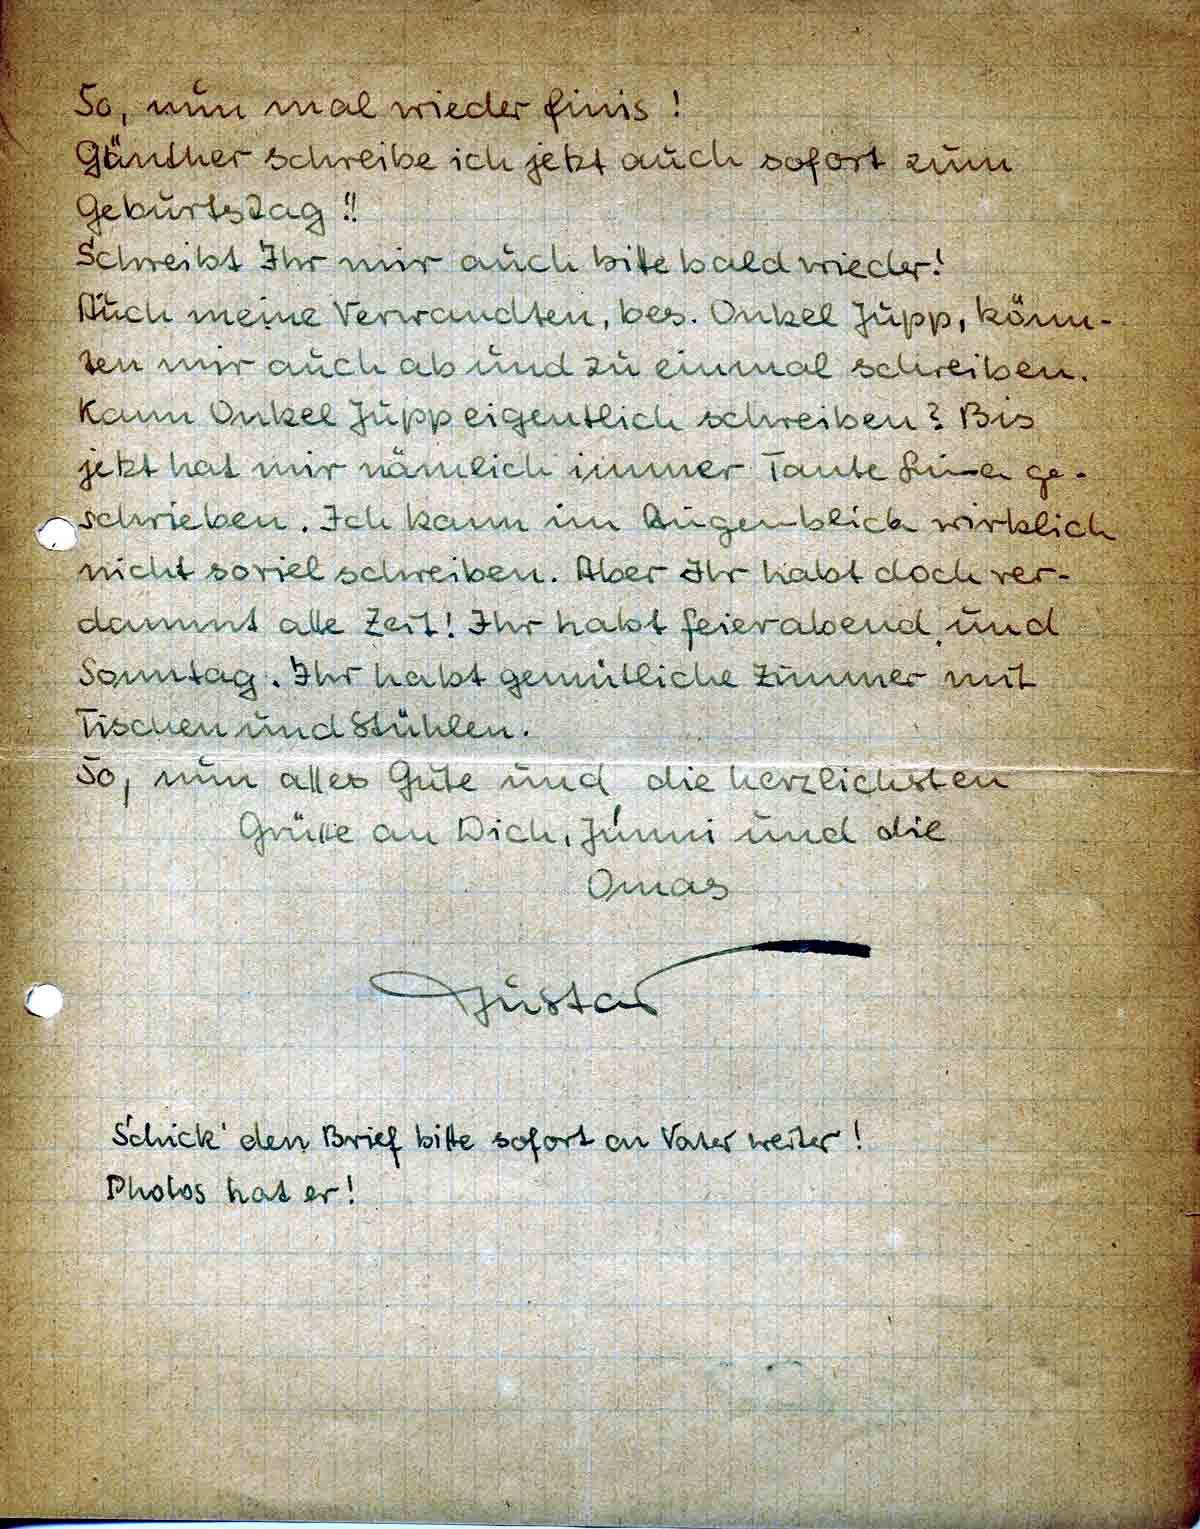 So, nun mal wieder finis!
Günther schreibe ich jetzt auch sofort zum
Geburtstag!!
Schreibt Ihr mir auch bitte bald wieder!
Auch meine Verwandten, bes. Onkel Jupp, könn-
ten mir auch ab und zu einmal schreiben.
Kann Onkel Jupp eigentlich schreiben? Bis
jetzt hat mir nämlich immer Tante ge-
schrieben. Ich kann im Augenblick wirklich
nicht soviel schreiben. Aber Ihr habt doch ver-
dammt alle Zeit! Ihr habt Feierabend und
Sonntag. Ihr habt gemütliche Zimmer mit
Tischen und Stühlen.
So, nun alles Gute und die herzlichsten
Grüße an Dich, und die
Omas
Gustav
Schick' den Brief bitte sofort an Vater weiter!
Photos hat er!